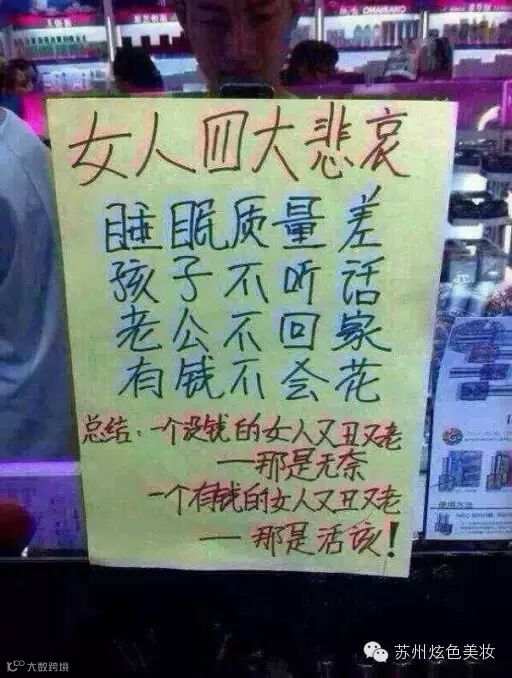 女人四大悲哀
睡眠质量差
孩子不听话
老公不回家
有钱不会花
总结：一个没钱的女人又丑又老
——那是无奈
一个有钱的女人又丑又老
——那是活该！
使用方法
苏州炫色美妆
大数跨境